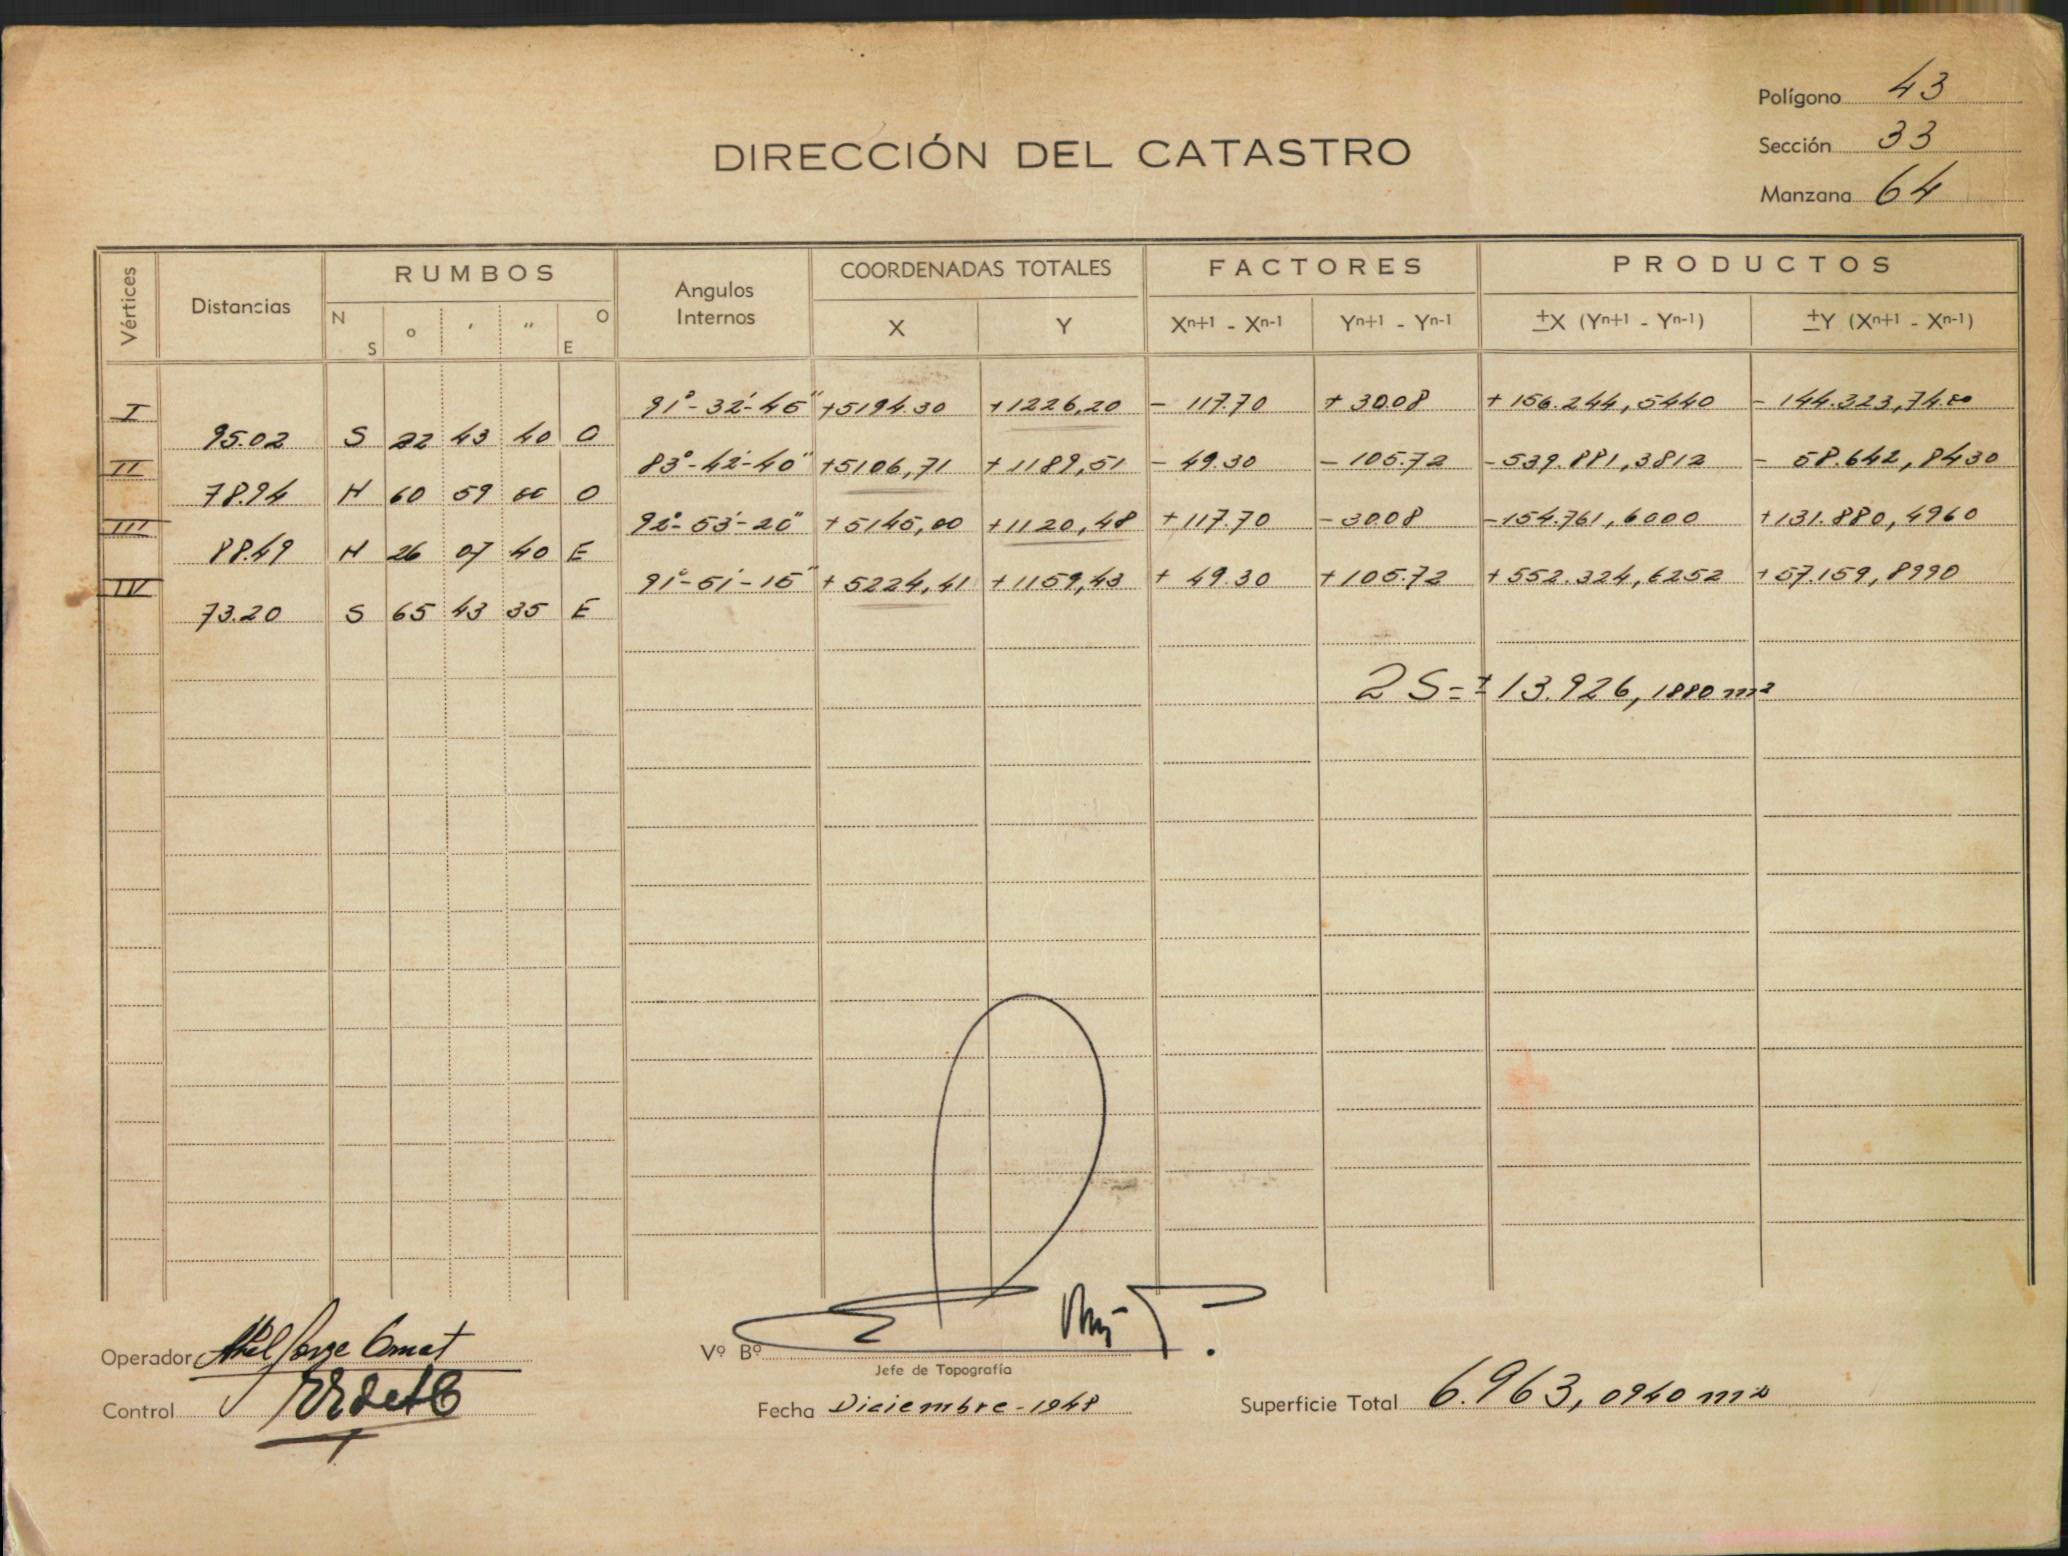 Polígono 43
Sección 33
Manzana 64
DIRECCIÓN DEL CATASTRO
Vértices Distancias RUMBOS Angulos Internos COORDENADAS TOTALES FACTORES PRODUCTOS
N S ° ' " O E X Y Xn+1 - Xn-1 Yn+1 - Yn-1 ±X (Yn+1 - Yn-1) ±Y (Xn+1 - Xn-1)
I 91°-32'-45" +5194.30 +1226,20 - 117.70 + 30.08 +156.244,5440 - 144.323,7400
95.02 S 22 43 40 O
II 83°-42'-40" +5106,71 +1189,51 - 49.30 - 105.72 -539.881,3812 - 58.642,8430
78.94 N 60 59 00 O
III 92°-53'-20" +5145,00 +1120,48 +117.70 -30.08 -154.761,6000 +131.880,4960
88.49 N 26 07 40 E
IV 91°-51'-15" +5224,41 +1159,43 + 49.30 +105.72 +552.324,6252 +57.159,8990
73.20 S 65 43 35 E
2 S = ± 13.926,1880 m²
Operador
Vº Bº
Jefe de Topografía
Control
Fecha Diciembre-1948
Superficie Total 6.963,0940 m²